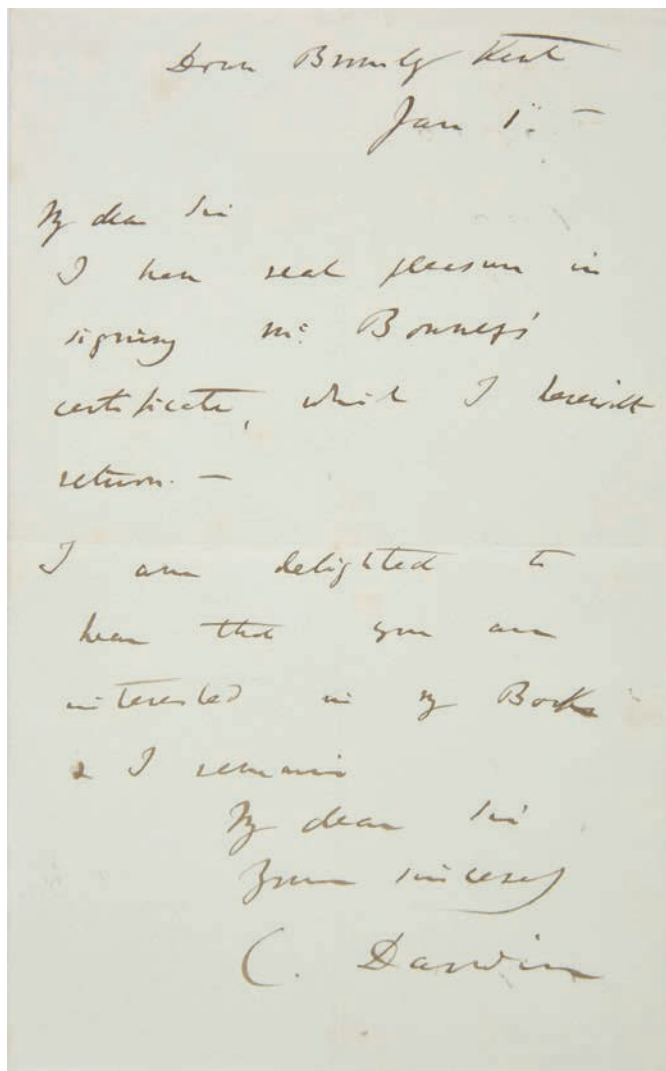 Down Bromley Kent
Jan 1. —
My dear Sir
I have real pleasure in
signing Mr. Bonney's
certificate, which I herewith
return. —
I am delighted to
hear that you are
interested in my Book
& I remain
My dear Sir
Yours sincerely
C. Darwin